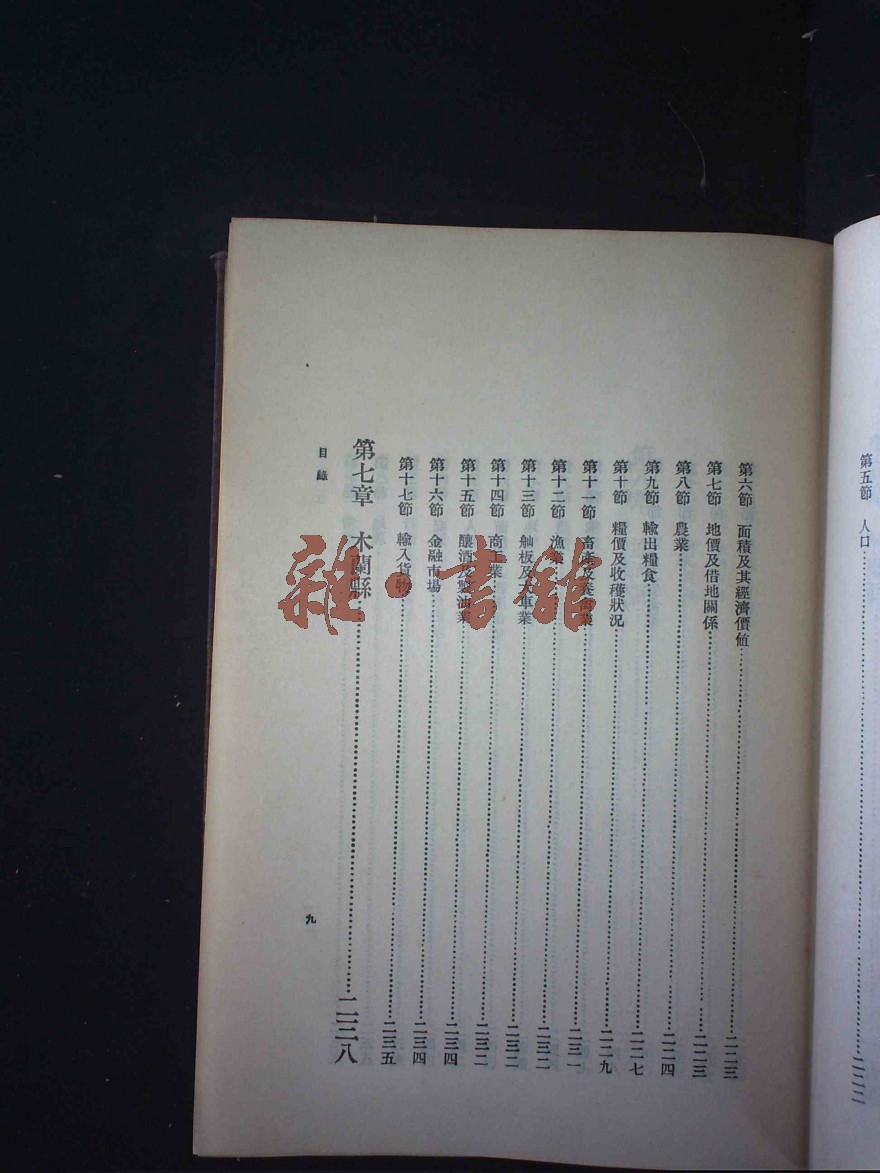 第五節 人口……二二二
第六節 面積及其經濟價値……二二三
第七節 地價及借地關係……二二三
第八節 農業……二二四
第九節 輸出糧食……二二七
第十節 糧價及收穫狀況……二二九
第十一節 畜產及養畜業……二三一
第十二節 漁業……二三二
第十三節 舢板及大車業……二三二
第十四節 商工業……二三二
第十五節 釀酒及製油業……二三四
第十六節 金融市場……二三四
第十七節 輸入貨物……二三五
第七章 木蘭縣……二三八
目錄
九
雜·書館